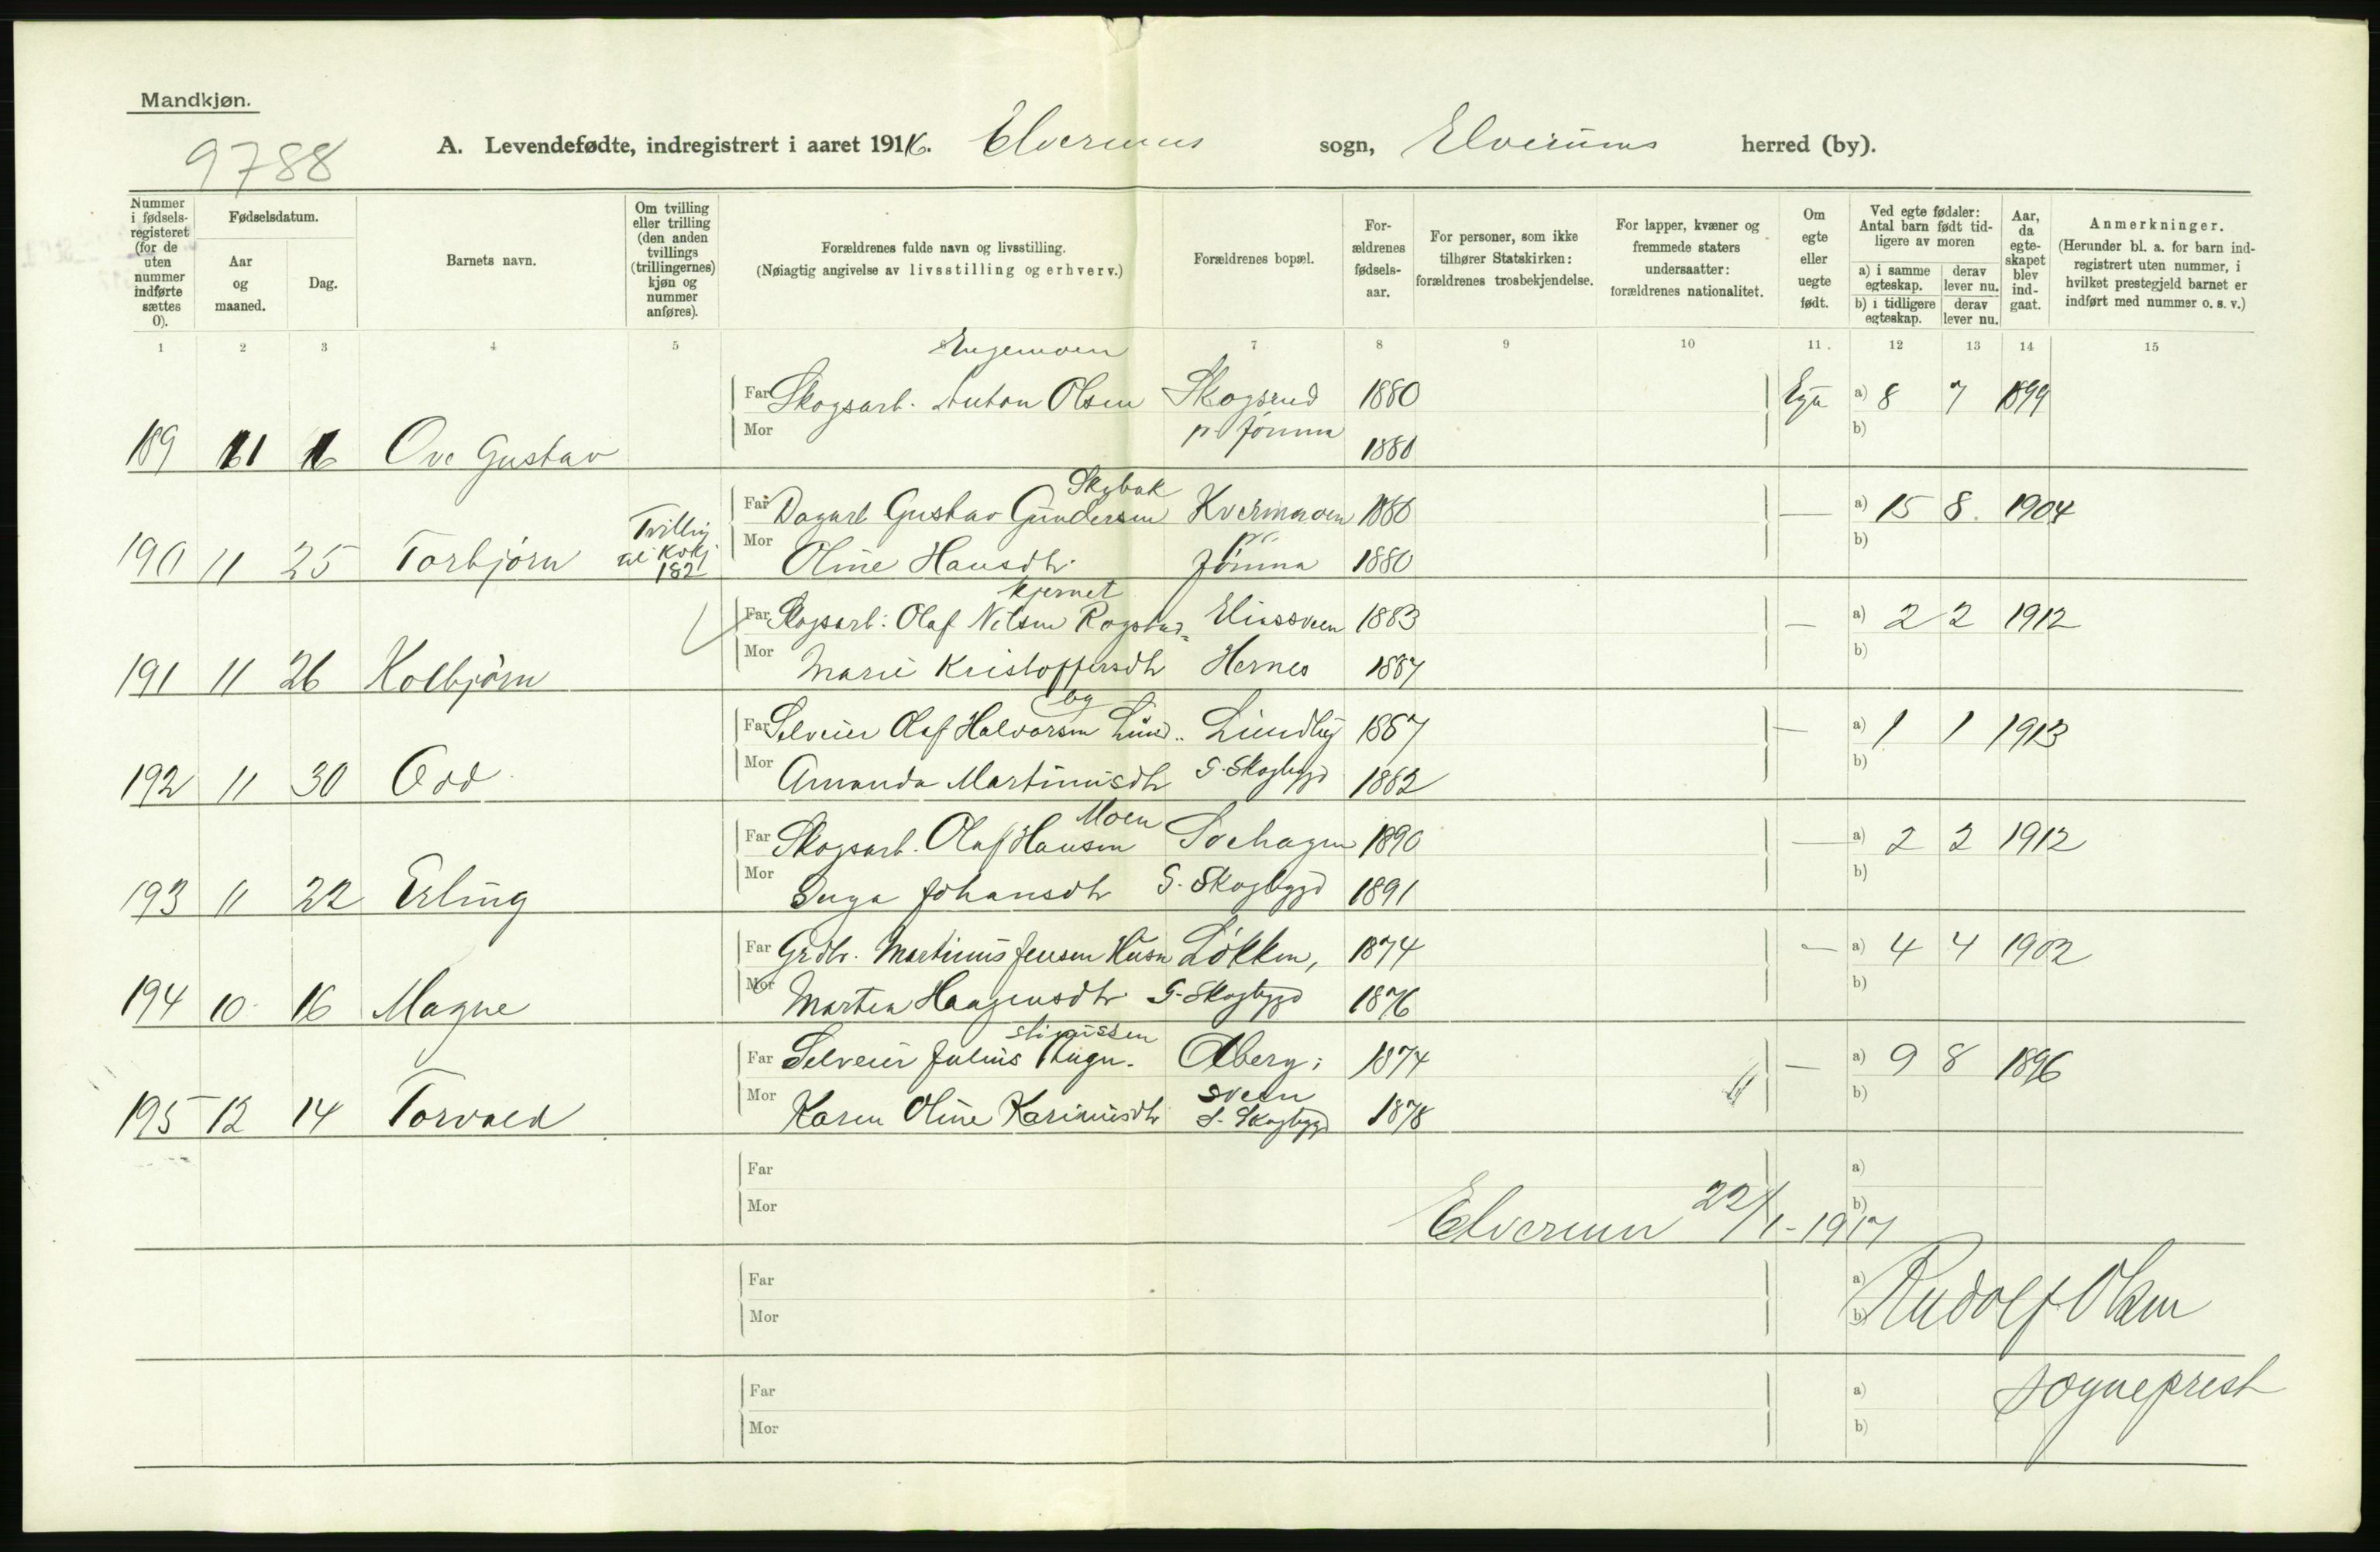 Mandkjøn.
9788
A. Levendefødte, indregistrert i aaret 1916. Elverums sogn, Elverums herred (by).
Nummer i fødselsregisteret (for de uten nummer indførte sættes 0).
Fødselsdatum.
Aar og maaned.
Dag.
Barnets navn.
Om tvilling eller trilling (den anden tvillings (trillingernes) kjøn og nummer anføres).
Forældrenes fulde navn og livsstilling.
(Nøiagtig angivelse av livsstilling og erhverv.)
Forældrenes bopæl.
Forældrenes fødselsaar.
For personer, som ikke tilhører Statskirken: forældrenes trosbekjendelse.
For lapper, kvæner og fremmede staters undersaatter: forældrenes nationalitet.
Om egte eller uegte født.
Ved egte fødsler: Antal barn født tidligere av moren
a) i samme egteskap. derav lever nu.
b) i tidligere egteskap. derav lever nu.
Aar, da egteskapet blev indgaat.
Anmerkninger.
(Herunder bl. a. for barn indregistrert uten nummer, i hvilket prestegjeld barnet er indført med nummer o. s. v.)
1 2 3 4 5 6 7 8 9 10 11. 12 13 14 15
Engemoen
Far Skogsarb. Anton Olsen Skogsrud 1880 a) 8 7 1899
189 11 Ove Gustav Mor p. Jømna 1880 b)
Skybak
Far Dagarb Gustav Gundersen Kvernmoen 1880 — a) 15 8. 1904
Tvilling
190 11 25 Torbjørn 182 Mor Oline Hansdtr. Jømna 1880 b)
kjernet
Far Skogsarb: Olaf Nilsen Rogstad- Eliassveen 1883 — a) 2 2 1912
191 11 26 Kolbjørn Mor Marie Kristoffersdtr Hernes 1887 b)
by
Far Selveier Olaf Halvorsen Lund.. Lundby 1887 — a) 1 1 1913
192 11 30 Odd Mor Amanda Martinusdtr S. Skogbygd 1882 b)
Moen
Far Skogsarb. Olaf Hansen 1890 — a) 2 2 1912
193 11 22 Erling Mor Inga Johansdtr S. Skogbygd 1891 b)
Far Grdbr. Martinus Jensen Løkken, 1874 — a) 4 4 1902
194 10 16 Magne Mor Martea Haagensdtr S. Skogbygd 1876 b)
Far Selveier Julius 1874 — a) 9 8 1896
195 12 14 Torvald Mor Karen Oline Karinusdtr sveen S. Skogbygd 1878 b)
Far a)
Mor b)
Elverum 22/1-1917
Far a)
Mor b)
Rudolf Olsen
Far a)
Mor b)
sogneprest